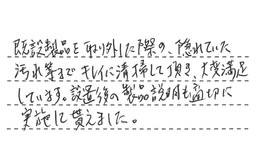 既設製品を取り外した際の、隠れていた
汚れ等までキレイに清掃して頂き、大変満足
しています。設置後の製品説明も適切に
実施して貰えました。